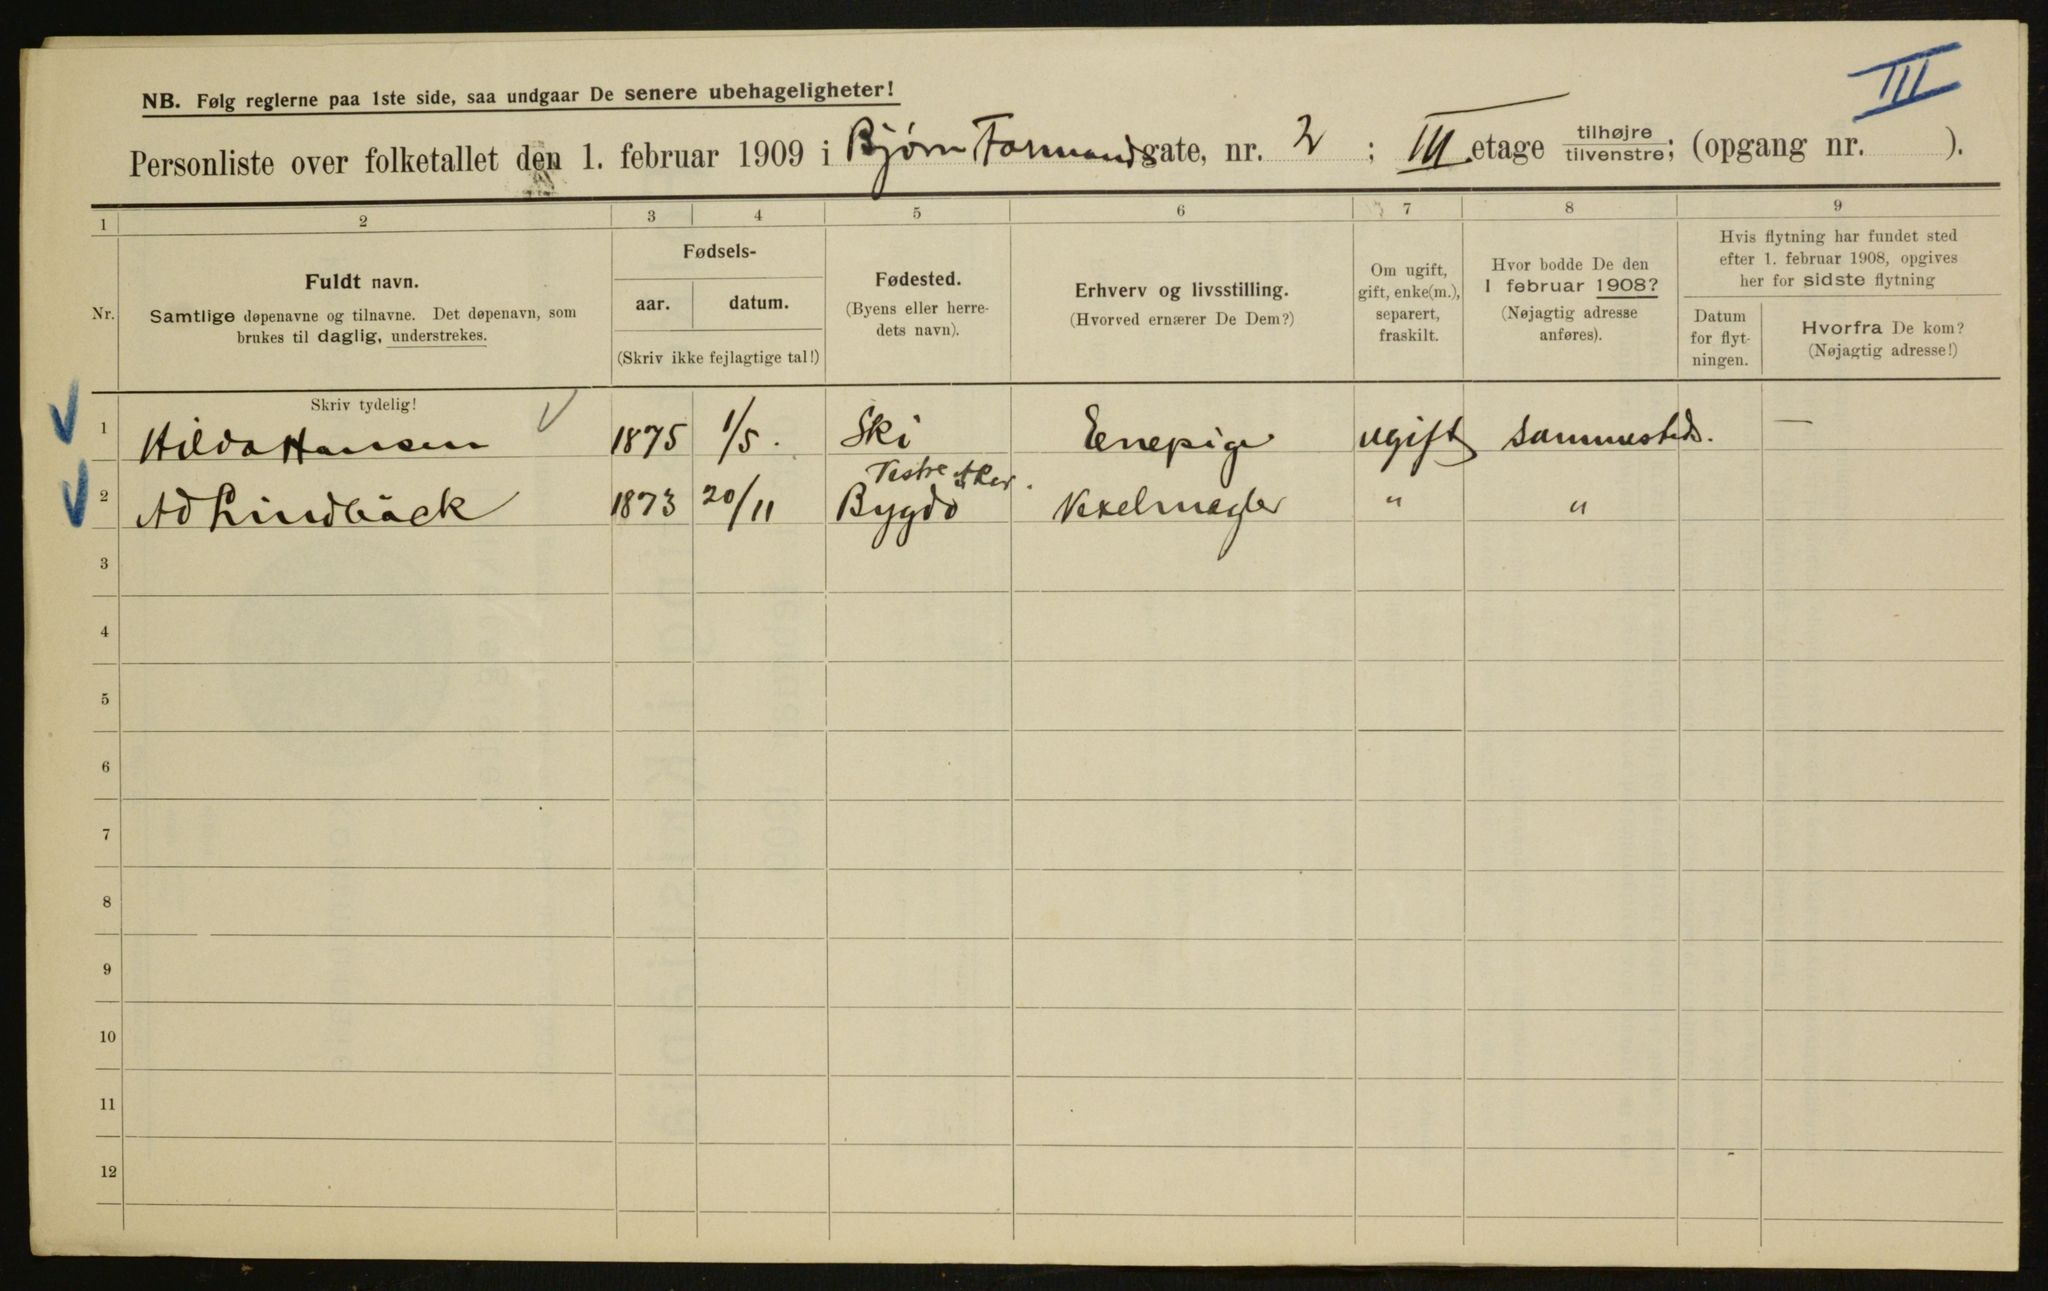 III
NB. Følg reglerne paa 1ste side, saa undgaar De senere ubehageligheter!
Personliste over folketallet den 1. februar 1909 i Bjørn Farmandgate, nr. 2 ; III etage tilhøjre/tilvenstre; (opgang nr. ).
1 2 3 4 5 6 7 8 9
Nr.
Fuldt navn.
Samtlige døpenavne og tilnavne. Det døpenavn, som
brukes til daglig, understrekes.
Fødsels-
aar. datum.
(Skriv ikke fejlagtige tal!)
Fødested.
(Byens eller herre-
dets navn).
Erhverv og livsstilling.
(Hvorved ernærer De Dem?)
Om ugift,
gift, enke(m.),
separert,
fraskilt.
Hvor bodde De den
1 februar 1908?
(Nøjagtig adresse
anføres).
Hvis flytning har fundet sted
efter 1. februar 1908, opgives
her for sidste flytning
Datum
for flyt-
ningen.
Hvorfra De kom?
(Nøjagtig adresse!)
Skriv tydelig!
1 Hilda Hansen 1875 1/5. Ski Enepige ugift Sammesteds. —
Aker.
2 Ad Lindbäck 1873 20/11 Bygdø Vexelmægler " "
3
4
5
6
7
8
9
10
11
12